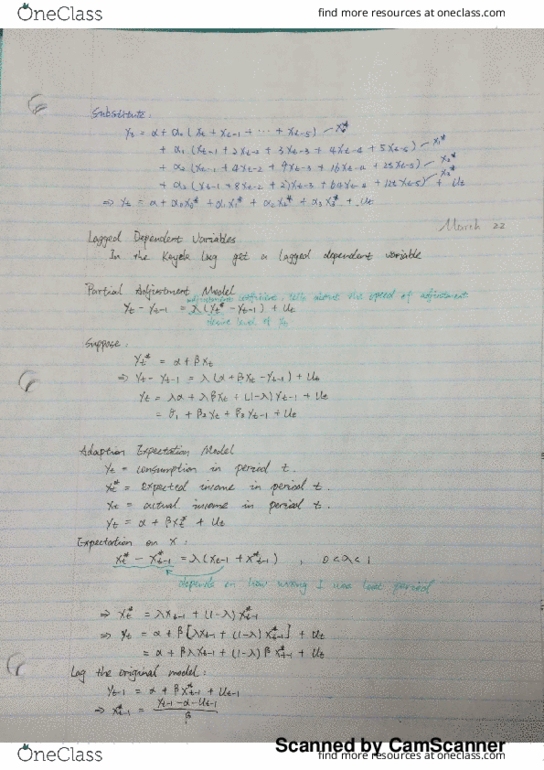 OneClass
find more resources at oneclass.com
Substitute:
Yt = α + α0 (Xt + Xt-1 + ... + Xt-5) - X0*
+ α1 (Xt-1 + 2Xt-2 + 3Xt-3 + 4Xt-4 + 5Xt-5) - X1*
+ α2 (Xt-1 + 4Xt-2 + 9Xt-3 + 16Xt-4 + 25Xt-5) - X2*
+ α3 (Xt-1 + 8Xt-2 + 27Xt-3 + 64Xt-4 + 125Xt-5) - X3* + Ut
⇒ Yt = α + α0X0* + α1X1* + α2X2* + α3X3* + Ut
March 22
Lagged Dependent Variables
In the Koyck lag get a lagged dependent variable
Partial Adjustment Model
adjustment coefficient, tells about the speed of adjustment
Yt - Yt-1 = λ(Yt* - Yt-1) + Ut
desire level of Yt
Suppose:
Yt* = α + βXt
⇒ Yt - Yt-1 = λ(α + βXt - Yt-1) + Ut
Yt = λα + λβXt + (1-λ)Yt-1 + Ut
= β1 + β2Xt + β3Yt-1 + Ut
Adaption Expectation Model
Yt = consumption in period t.
Xt* = expected income in period t.
Xt = actual income in period t.
Yt = α + βXt* + Ut
Expectation on X:
Xt* - Xt-1* = λ(Xt-1 + Xt-1*) , 0<λ<1
depends on how wrong I was last period
⇒ Xt* = λXt-1 + (1-λ)Xt-1*
⇒ Yt = α + β[λXt-1 + (1-λ)Xt-1*] + Ut
= α + βλXt-1 + (1-λ)βXt-1* + Ut
Lag the original model:
Yt-1 = α + βXt-1* + Ut-1
⇒ Xt-1* = (Yt-1 - α - Ut-1) / β
Scanned by CamScanner
OneClass
find more resources at oneclass.com